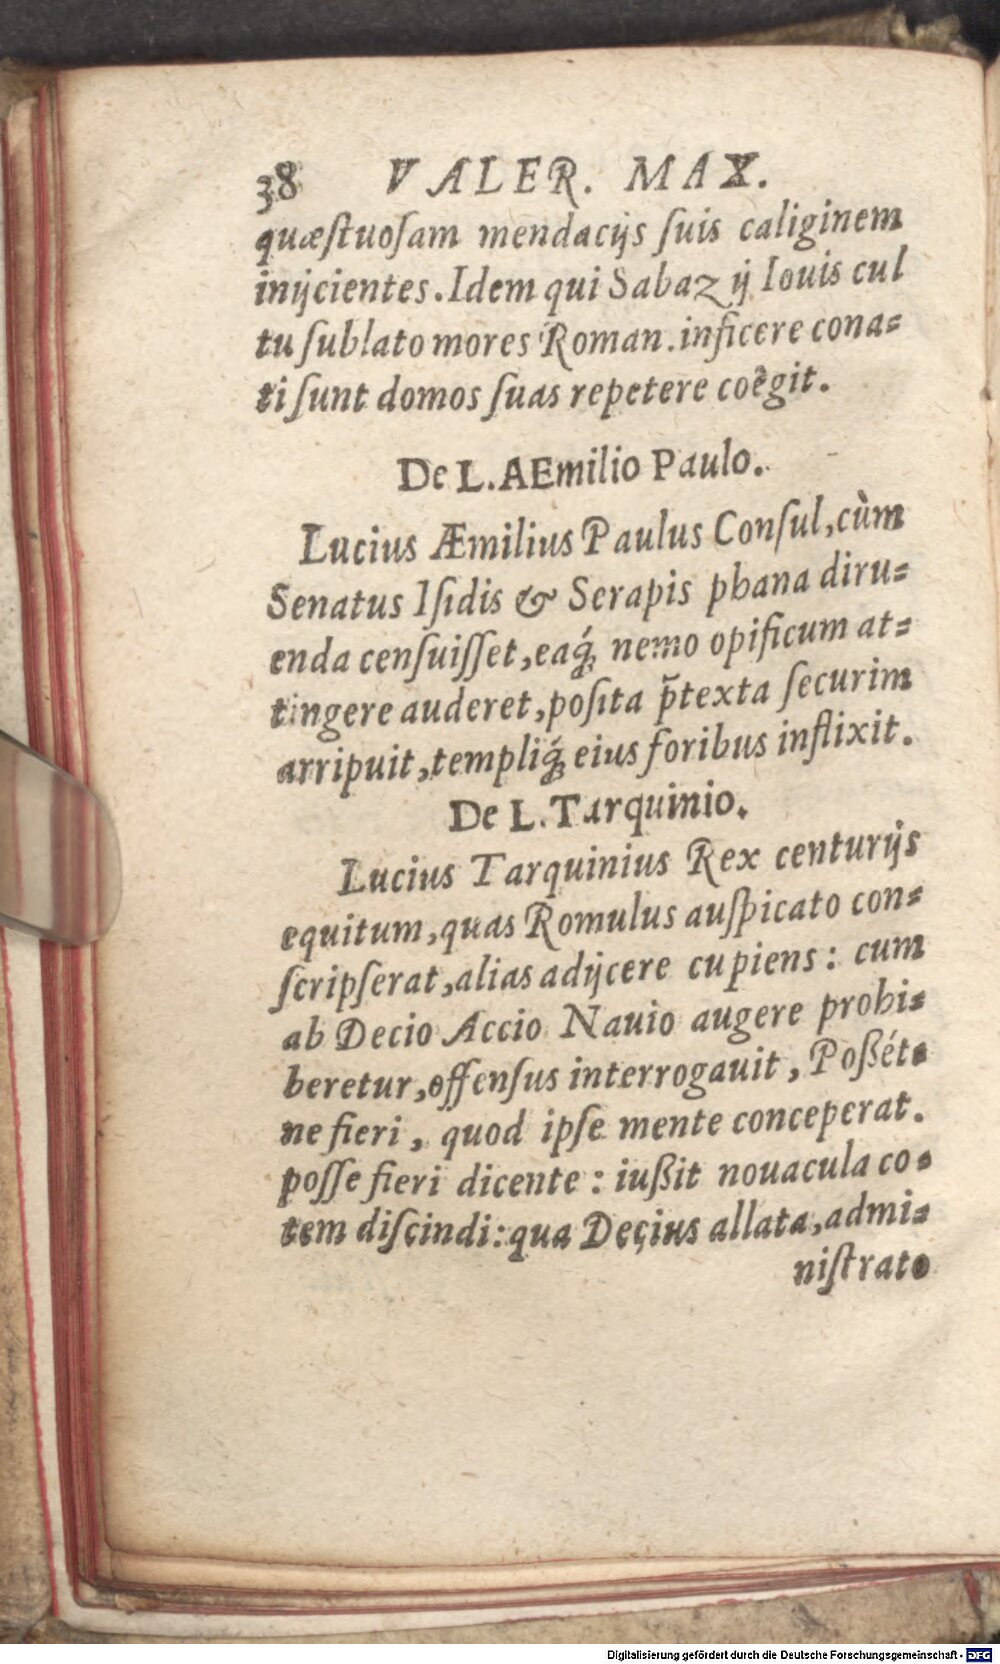 38 VALER. MAX.
quæſtuoſam mendacijs ſuis caliginem
inijcientes. Idem qui Sabaz ij Iouis cul
tu ſublato mores Roman. inficere cona⸗
ti ſunt domos ſuas repetere coëgit.
De L. AEmilio Paulo.
Lucius Æmilius Paulus Conſul, cùm
Senatus Iſidis & Serapis phana diru⸗
enda cenſuiſſet, eaq́ꝫ nemo opificum at⸗
tingere auderet, poſita p̃texta ſecurim
arripuit, templiq́ꝫ eius foribus inflixit.
De L. Tarquinio.
Lucius Tarquinius Rex centurijs
equitum, quas Romulus auſpicato con⸗
ſcripſerat, alias adijcere cupiens: cum
ab Decio Accio Nauio augere prohi⸗
beretur, offenſus interrogauit, Poßét⸗
ne fieri, quod ipſe mente conceperat.
poſſe fieri dicente: iußit nouacula co⸗
tem diſcindi: qua Deçius allata, admi⸗
niſtrato
Digitalisierung gefördert durch die Deutsche Forschungsgemeinschaft - DFG